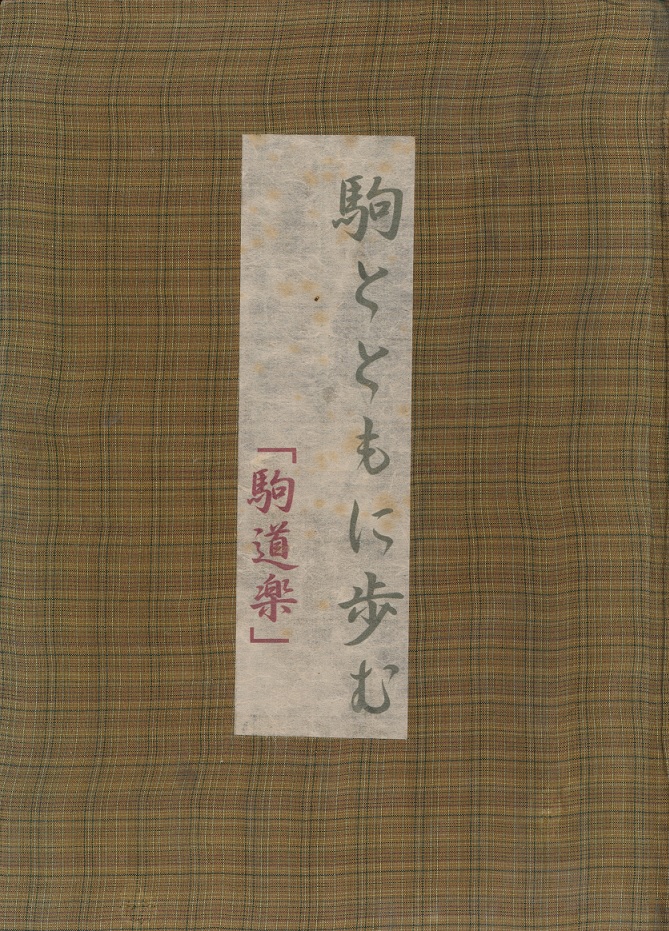 駒とともに歩む
「駒道楽」